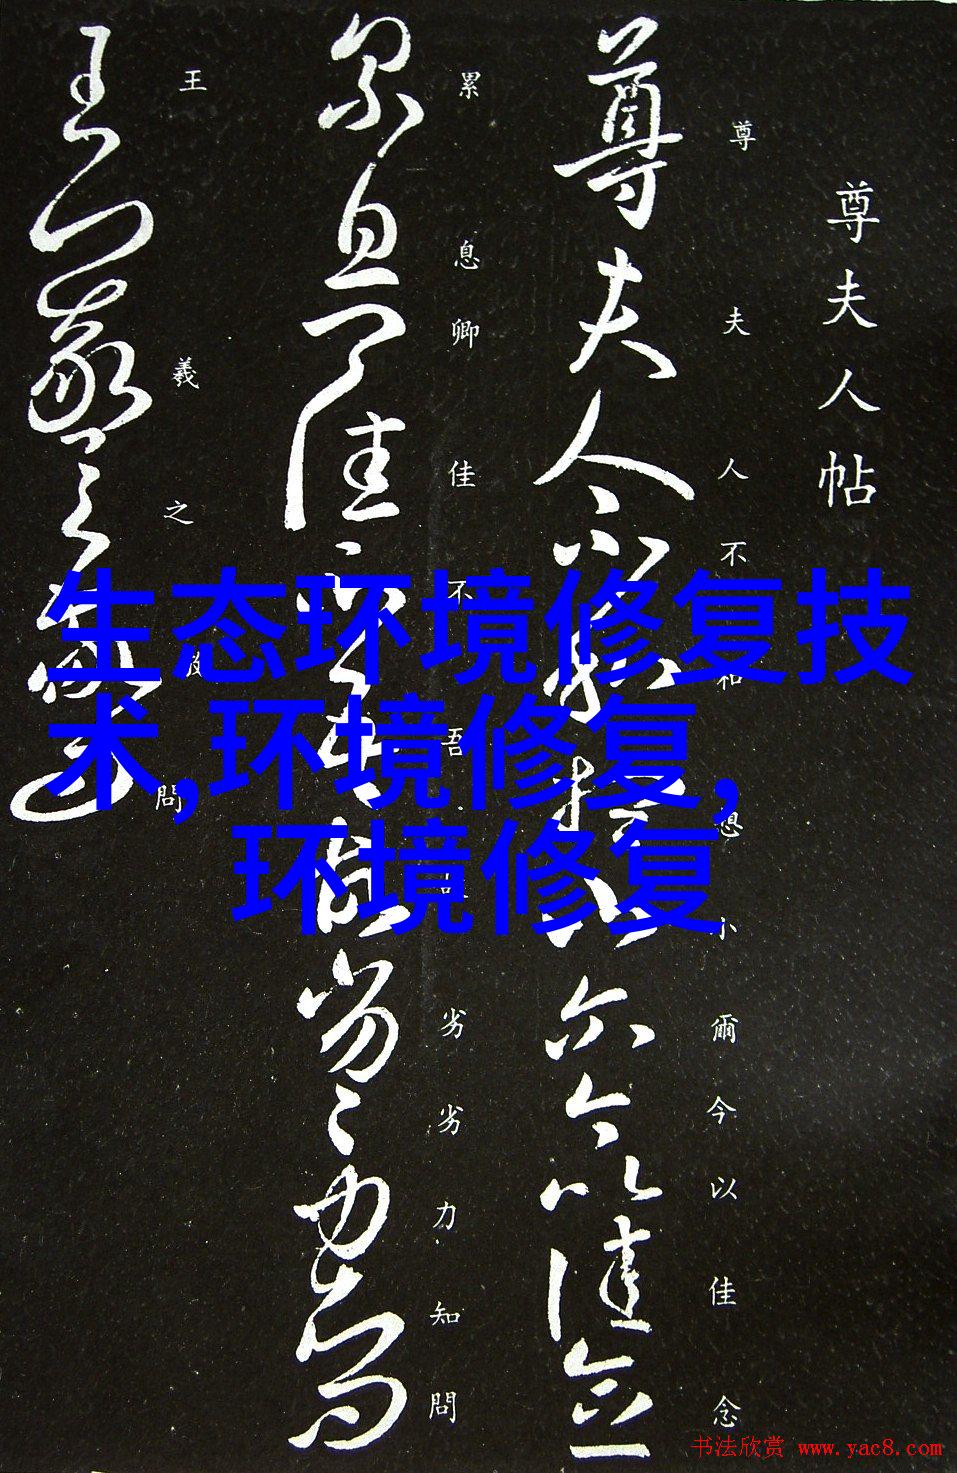 尊夫人帖
尊夫人不和想小爾今以佳念
累息卿佳不吾劣劣力知問
王羲之問
生态环境修复技
术,环境修复,
环境修复
书法欣赏 www.yac8.com